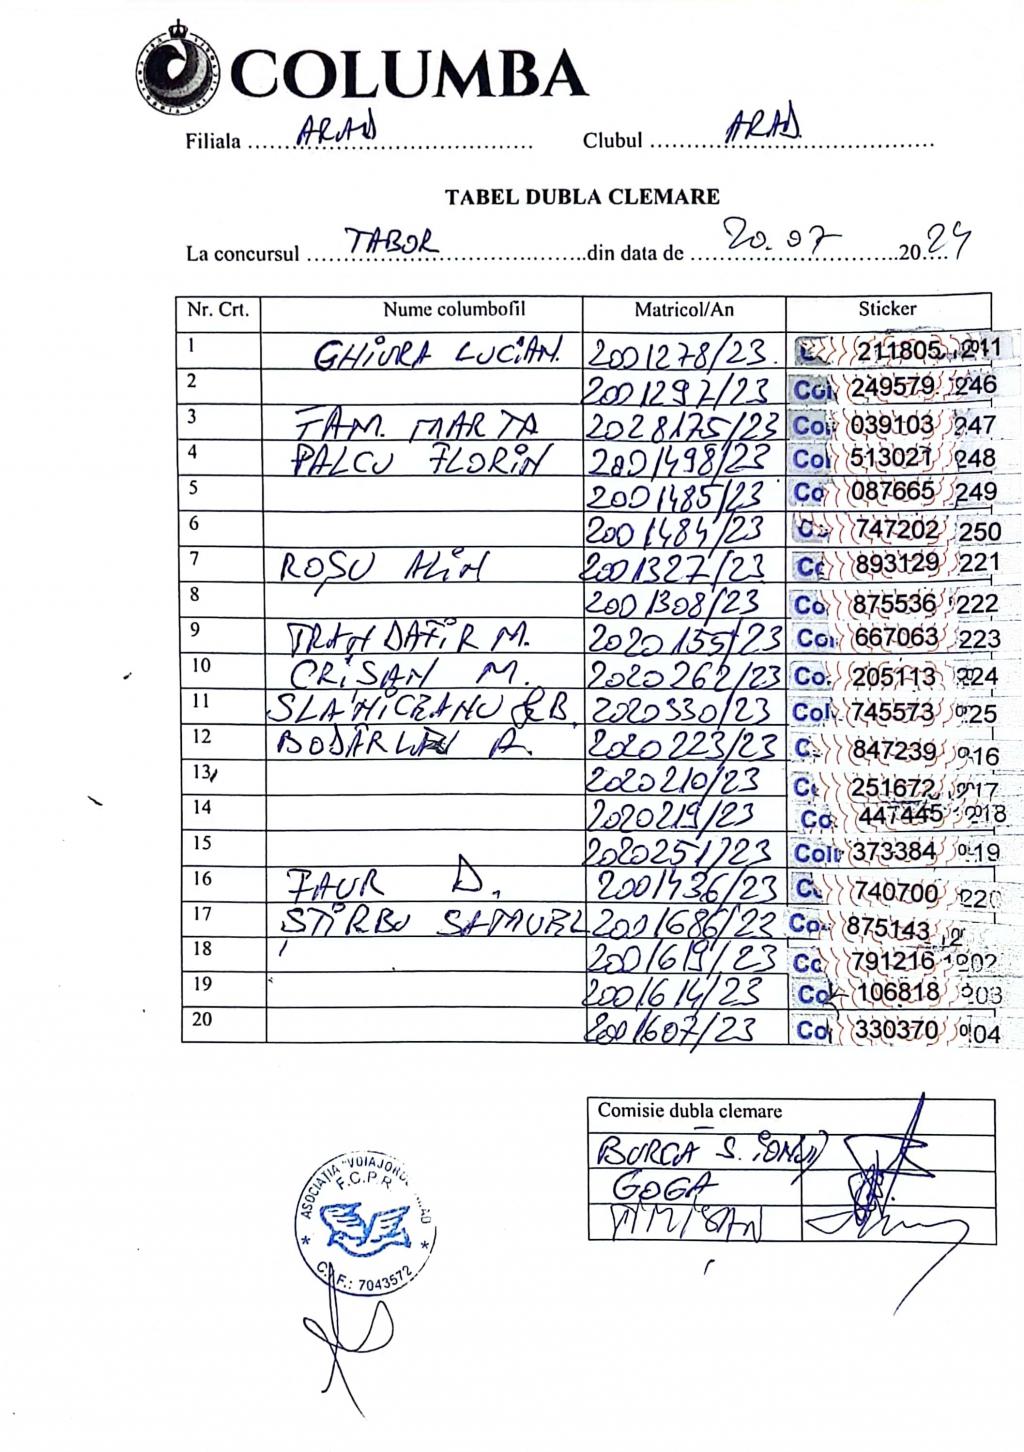 COLUMBA
Filiala ARAD Clubul ARAD
TABEL DUBLA CLEMARE
La concursul TABOR din data de 20.07 2024
Nr. Crt. Nume columbofil Matricol/An Sticker
1 GHIURA LUCIAN. 2001278/23. 211805 211
2 2001297/23 Col 249579 246
3 TAM. MARTA 2028175/23 Col 039103 247
4 PALCU FLORIN 2001498/23 Col 513021 248
5 2001485/23 Co 087665 249
6 2001484/23 Co 747202 250
7 ROȘU ALIN 2001327/23 Co 893129 221
8 2001308/23 Co 875536 222
9 TRANDAFIR M. 2020155/23 Col 667063 223
10 CRIȘAN M. 2020262/23 Co. 205113 224
11 SLANICEANU G&B. 2020330/23 Col 745573 025
12 BODARLAU A. 2020223/23 C 847239 016
13 2020210/23 C 251672 017
14 2020219/23 Co 447445 218
15 2020251/23 Colu 373384 019
16 FAUR D. 2001436/23 C 740700 220
17 STIRBU SAMUEL 2001686/23 Co 875143
18 2001619/23 Co 791216 202
19 2001614/23 Co 106818 203
20 2001607/23 Col 330370 004
Comisie dubla clemare
BURCA S. IONUȚ
GOGA
ASOCIAȚIA "VOIAJORUL" ARAD
F.C.P.R.
C.I.F.: 7043572